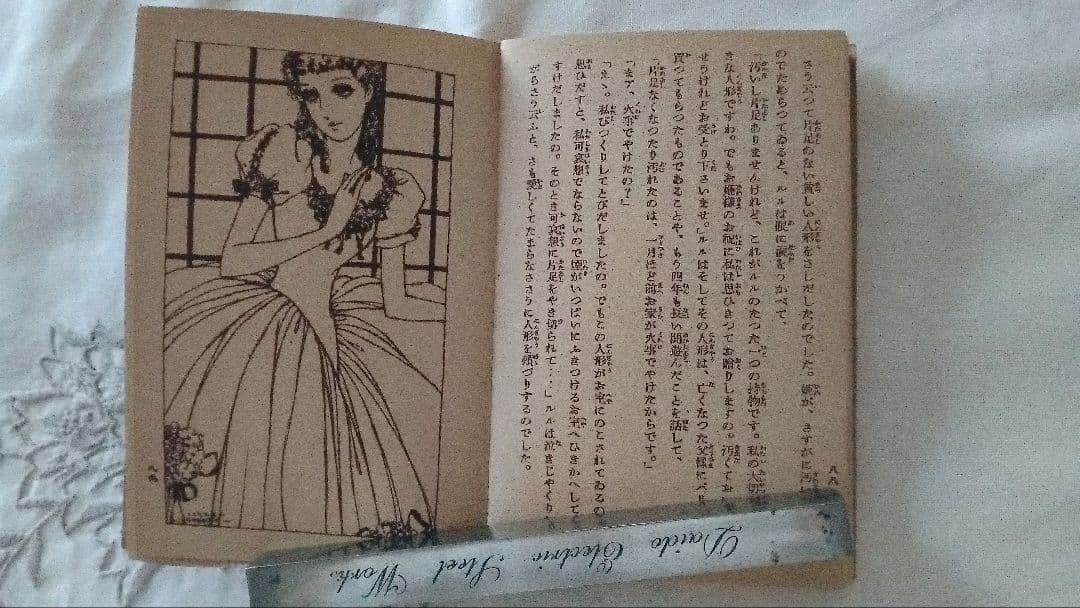 八八
さう云つて片足のない貧しい人形をさしだしたのでした。姫が、さすがに汚い
のでためらつてゐると、ルルは眼に涙をうかべて、
「汚いし片足ありませんけれど、これがルルのたつた一つの持物です。私の大切
きな人形ですわ。でもお姫様のお祝に私は思ひきつてお贈りしますの。汚くてお
せうけれどお受とり下さいませ。」ルルはそしてその人形は、亡くなつた父様にパリ
買つてもらつたものであることや、もう四年も長い間遊んだことを話して、
「片足なくなつたり汚れたのは、一月ほど前お家が火事でやけたからです。」
「まア、火事でやけたの?」
「えゝ。私びつくりしてとびだしましたの。でもこの人形がお室にのこされてゐるの
思ひだすと、私可哀想でならないので煙がいつぱいにふきつけるお室へひきかへして
すけだしましたの。そのとき可哀想に片足をやき切られて……」ルルは泣きじやくり
がらさう云ふと、さも愛しくてたまらなささうに人形を頬づりするのでした。
Daido Electric Steel Works.